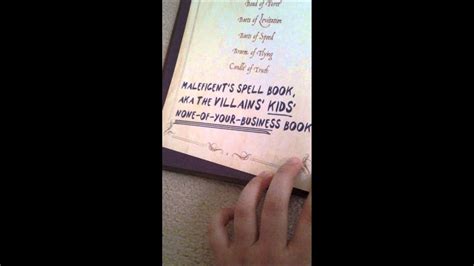 Boots of Levitation
Boots of Speed
Broom of Flying
Candle of Truth
MALEFICENT'S SPELL BOOK,
AKA THE VILLAINS' KIDS'
NONE-OF-YOUR-BUSINESS BOOK